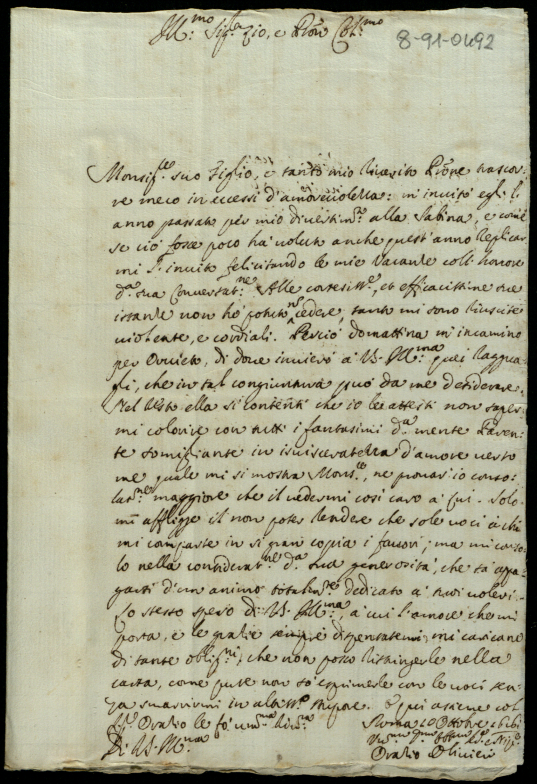 Ill:mo Sig.r Zio, e Prōn Col:mo
8-91-0492
Monsig.re suo figlio, e tanto mio riverito Prōne trascor-
re meco in eccessi d'amorevolezza: m'invitò egli l'
anno passato per mio divertim.to alla Sabina, e come
se ciò fosse poco hà voluto anche quest'anno replicar-
mi l'invito felicitando le mie vacanze coll'honore
d.a sua Conversat.ne Alle cortesiss.e, et efficacissime sue
istanze non hò potuto n̄ cedere, tanto mi sono riuscite
violente, e cordiali. Perciò domattina m'incamino
per Orvieto, di dove invierò à V.S. Ill:ma quei raggua-
gli, che in tal congiuntura può da me desiderare.
Nel resto ella si contenti che io le attesti non saper-
mi colorire con tutti i fantasimi d.a mente Paren-
te somigliante in isvisceratezza d'amore verso
me quale mi si mostra Mons.re, ne provar io conso-
lat.ne maggiore che il vedermi così caro à lui. Solo
m'affligge il non poter rendere che sole voci à chi
mi comparte in sì gran copia i favori; ma mi conso-
lo nella considerat.ne d.a sua generosità, che sà appa-
garsi d'un animo totalm.te dedicato à suoi voleri.
Lo stesso spero di V.S. Ill:ma, à cui l'amore che mi
porta, e le gratie sempre dispensatemi, mi caricano
di tante oblig.ni, che non posso ristringerle nella
carta, come pure non sò esprimerle con le voci sen-
za smarrirmi in alto stupore. E qui assieme col
S.r Oratio le fò um.ma riv.za
Di V.S. Ill:ma
Roma 10 Ottobre
Oratio Olivieri